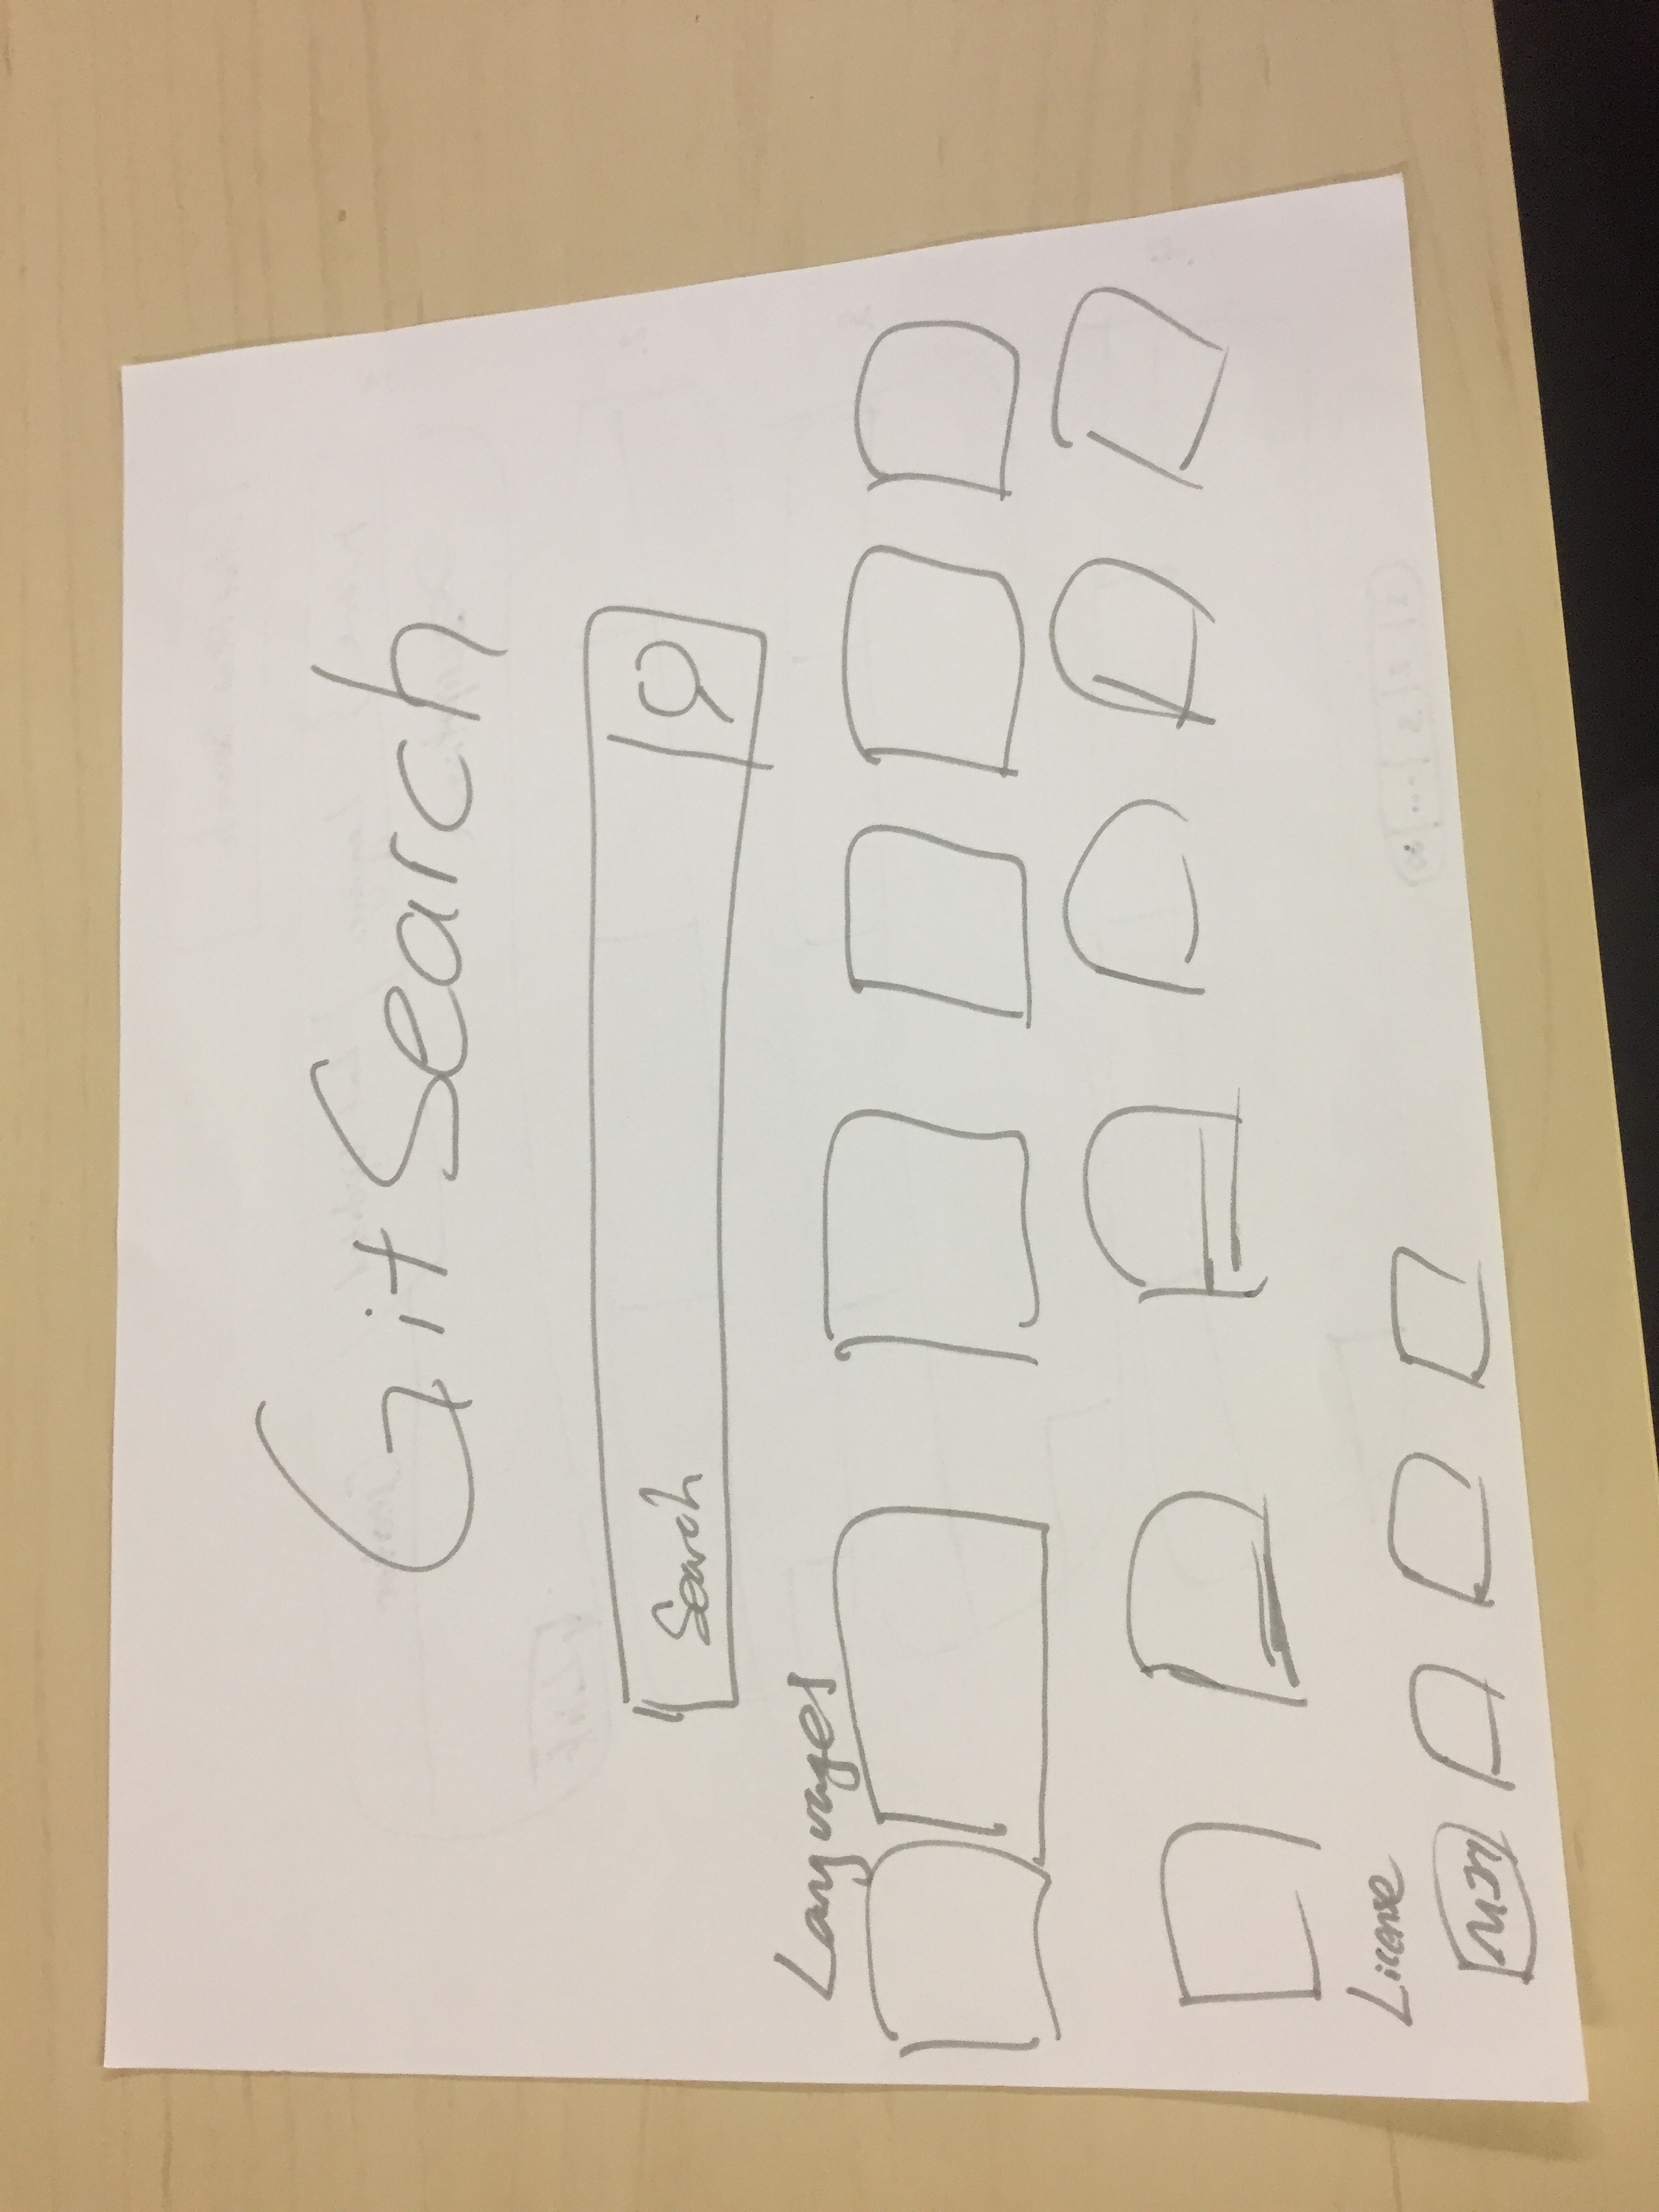 Git Search
Search
Languages
License